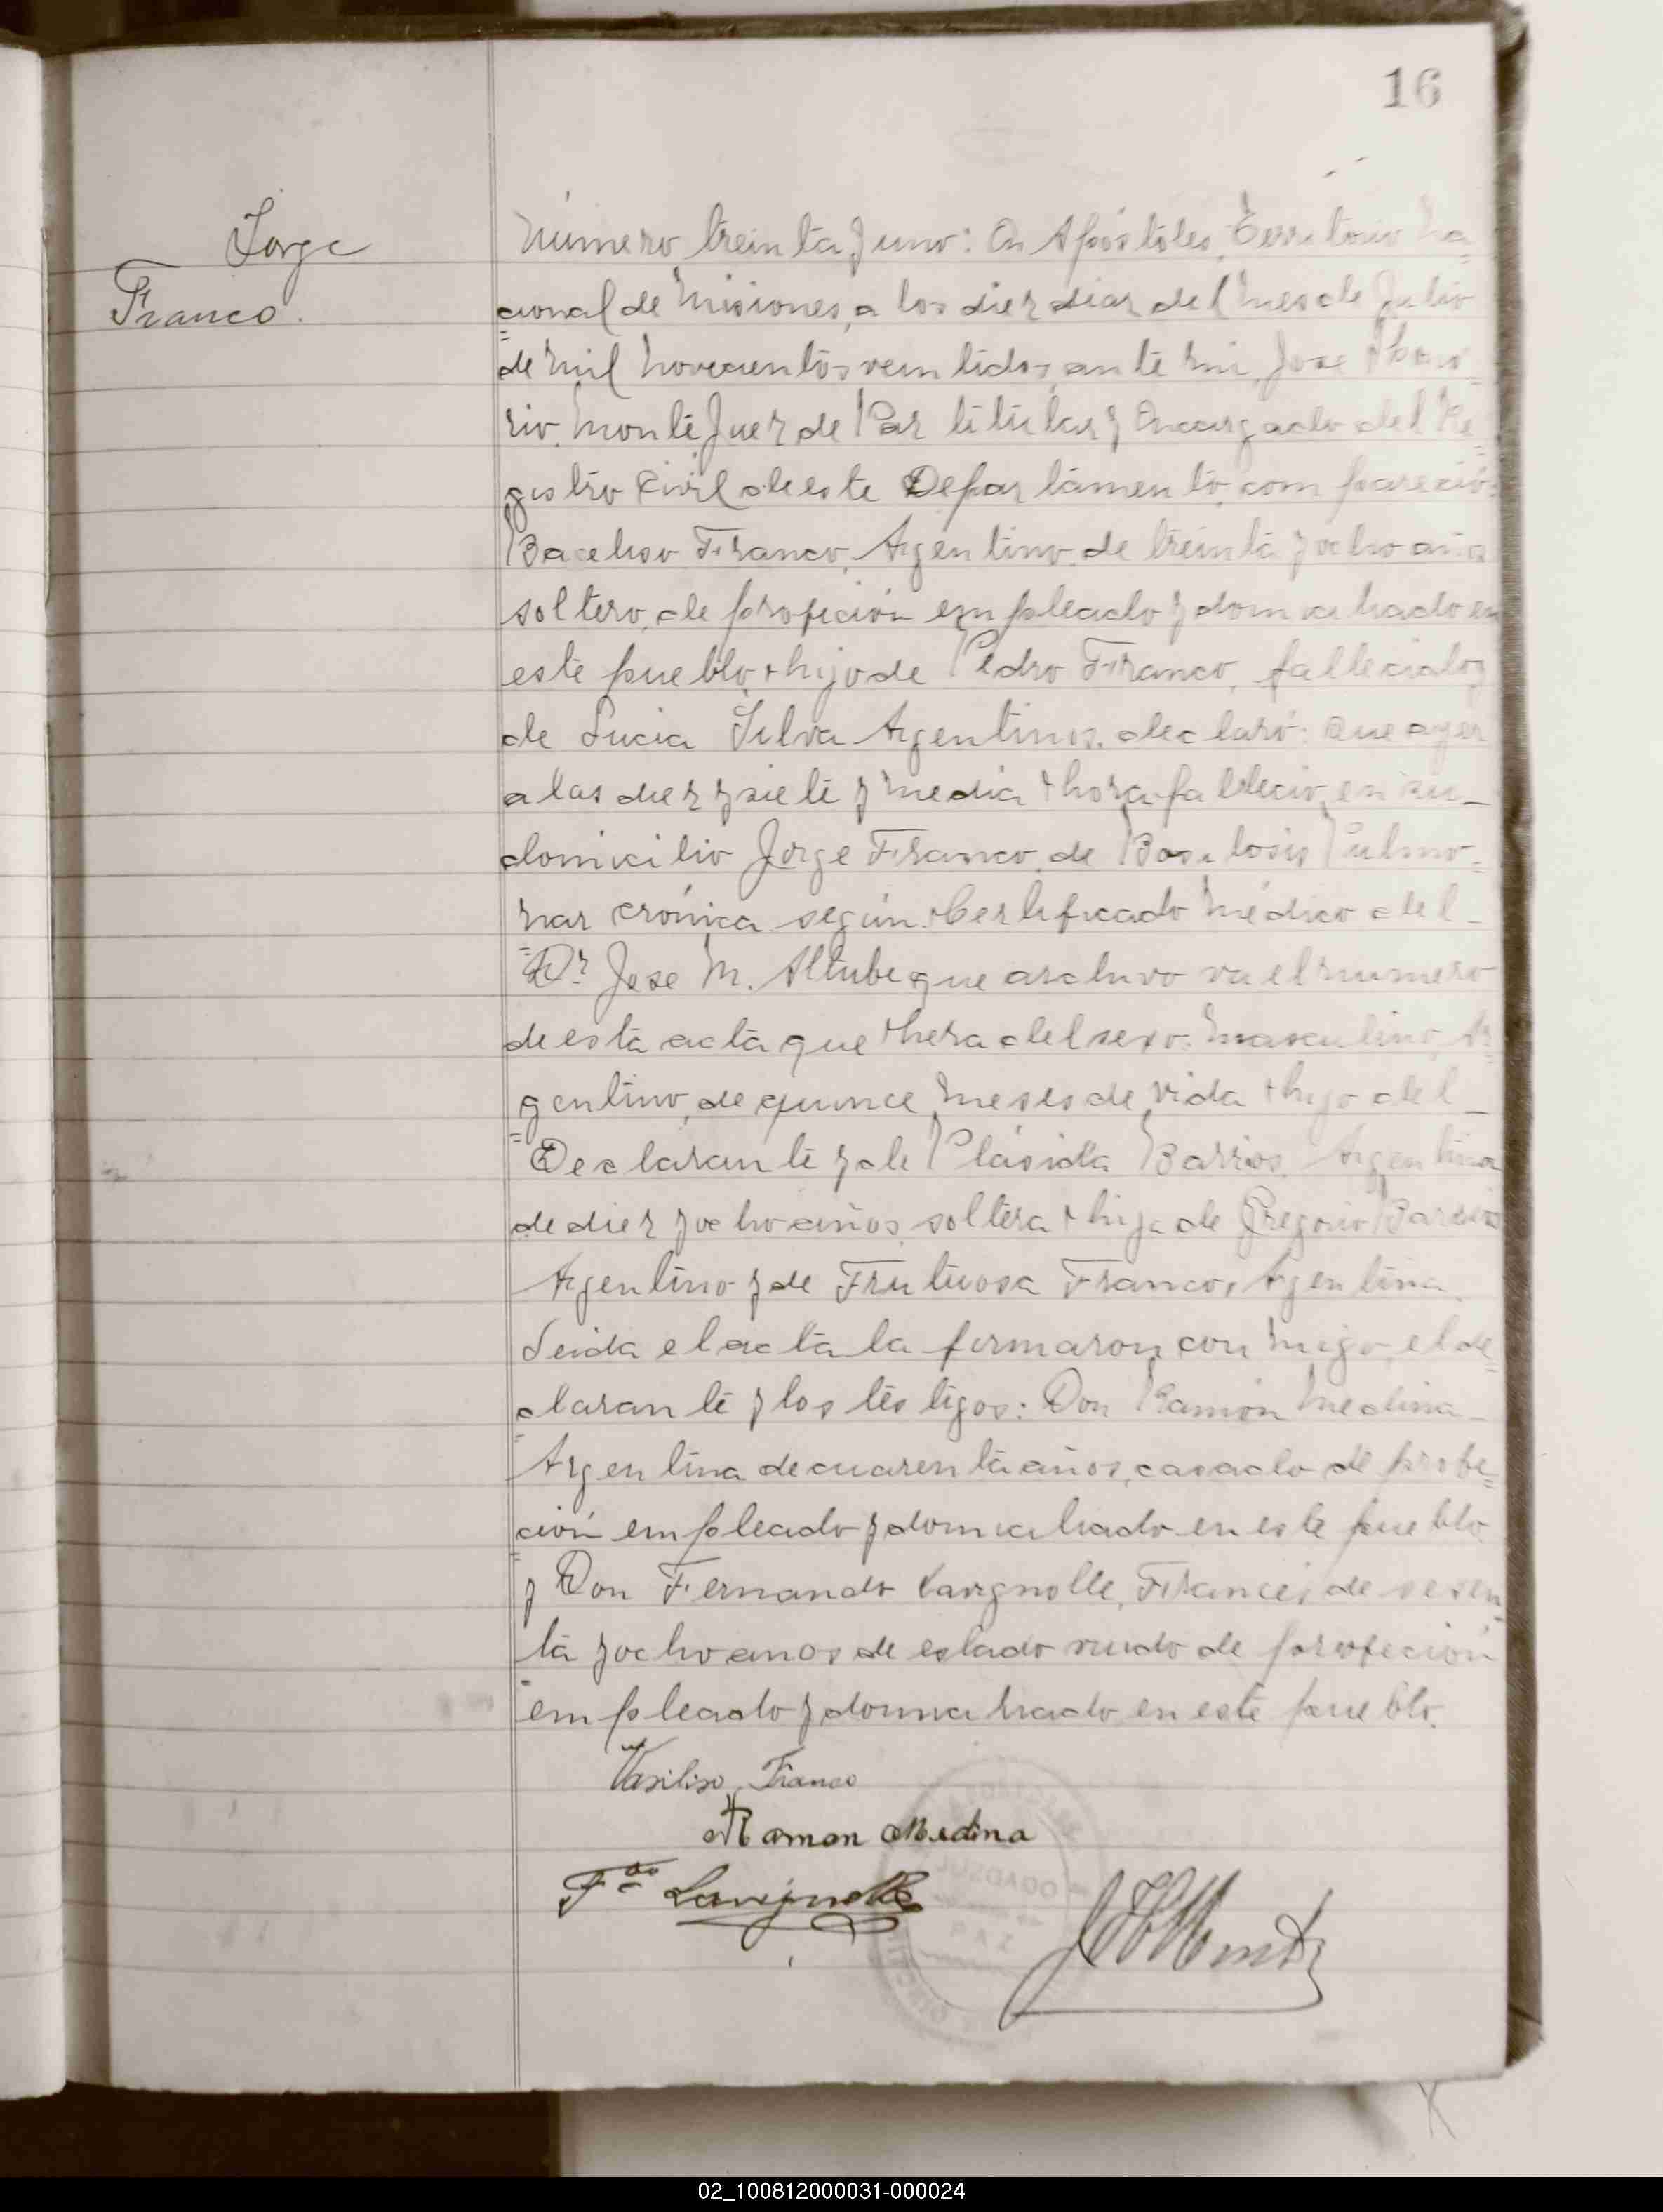 16
Jorge
Franco.
Número treinta y uno: En Apóstoles, Territorio Na
cional de Misiones, a los diez dias del mes de Julio
de mil novecientos veintidos, ante mi, Jose Hono
rio Monte Juez de Paz titular y Encargado del Re=
gistro Civil de este Departamento, compareció:
Baceliso Franco, Argentino, de treinta y ocho años
soltero, de profeción empleado y domiciliado en
este pueblo, hijo de Pedro Franco, fallecido y
de Lucia Silva Argentinos, declaró: Que ayer
a las diez y siete y media hora fallecio, en su_
domicilio Jorge Franco, de Pulmo=
nar crónica según Certificado Médico del_
Dr. Jose M. Altube que archivo va el numero
de esta acta que hera del sexo masculino, Ar
gentino, de quince meses de vida hijo del_
Declarante y de Plásida Barrios, Argentina
de diez y ocho años, soltera hija de Gregorio Barrios
Argentino y de Frutuosa Franco, Argentina.
Leida el acta la firmaron con migo, el de=
clarante y los testigos: Don Ramón Medina_
Argentina de cuarenta años, casado de profe=
ción empleado y domiciliado en este pueblo
y Don Fernando Lavignolle, Francés, de sesen
ta y ocho anos de estado viudo de profeción
empleado y domiciliado en este pueblo.
Vasiliso Franco
Ramon Medina
Fdo Lavignolle
JHMonte
JUZGADO
PAZ
02_100812000031-000024